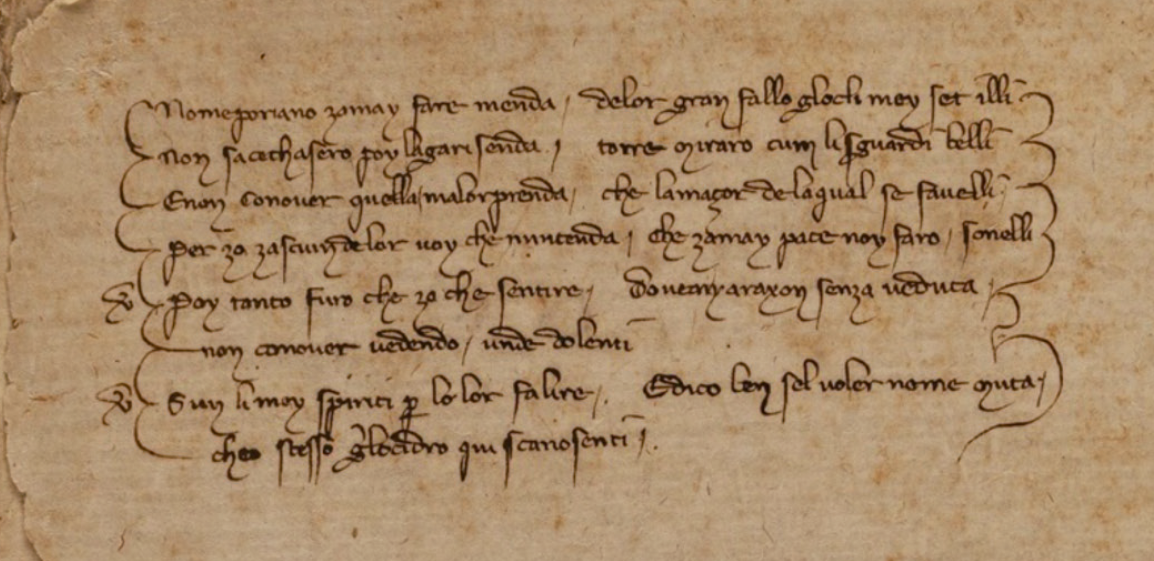 Nomeporiano zamay fare menda / delor gran fallo glocli mey set illi
Non sacechasero poy lagarisenda / torre miraro cum lisguardi belli
Enon conover quella / malorprenda / che lamaçor delaqual se favelli /
Per zo zascun delor voy che mintenda / che zamay pace noy faro / sonelli
V Poy tanto furo che zo che sentire / doveanyaraxon senza veduta /
non conover vedendo / unde dolenti
V Sun li mey spiriti p lo lor falire / Edico ben sel voler nome muta /
cheo stesso glocidro qui scanosenti /.